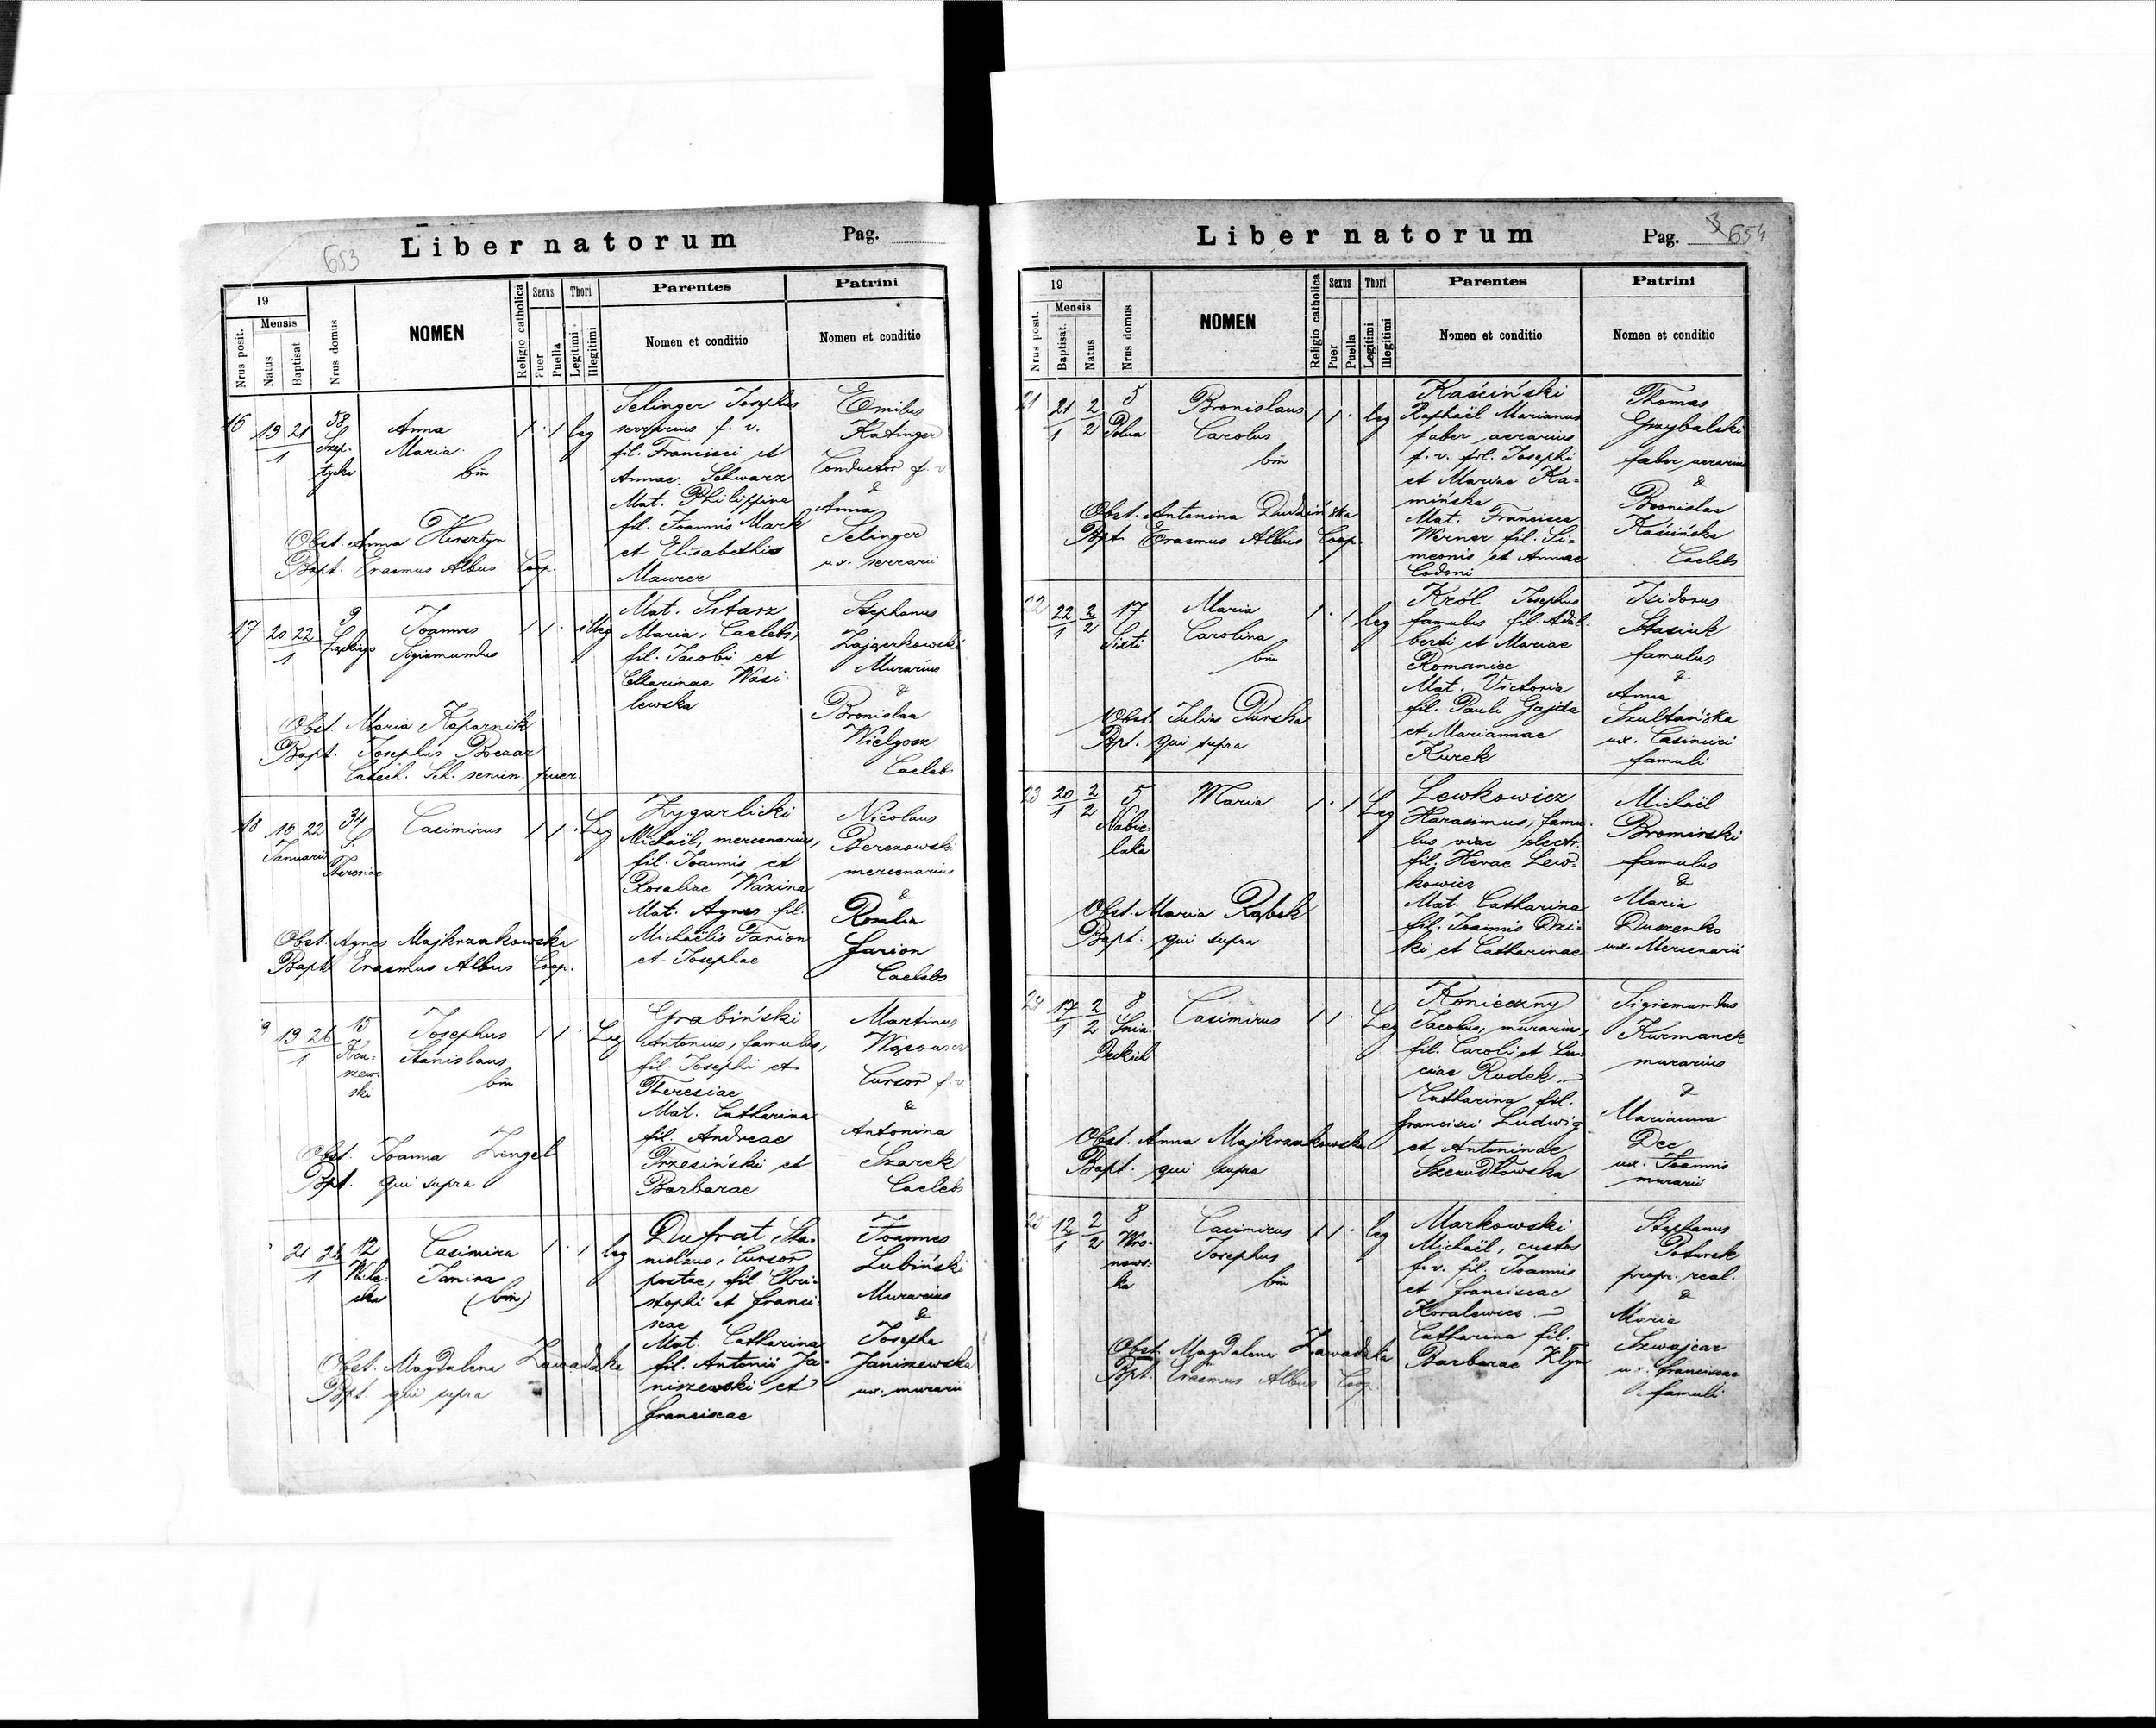 653
Liber natorum Pag.
19
Mensis
Nrus posit.
Natus
Baptisat
Nrus domus
NOMEN
Religio catholica
Sexus
Puer
Puella
Thori
Legitimi
Illegitimi
Parentes
Nomen et conditio
Patrini
Nomen et conditio
16 19 21 58 Anna 1 . 1 leg
1 Szep- Maria
tycka bin
Selinger Josephus
serrarius f. v.
fil. Francisci et
Annae Schwarz
Mat. Philippina
fil. Joannis Mark
et Elisabethis
Maurer
Emilus
Katinger
Conductor f. v
&
Anna
Selinger
ux. serrarii
Obst. Anna Hirsztyn
Bapt. Erasmus Albus Coop.
17 20 22 9 Joannes 1 1 . illeg
1 Sigismundus
Mat. Sitarz
Maria, Caelebs,
fil. Jacobi et
Marinae Wasi-
lewska
Stephanus
Zajączkowski
Murarius
&
Bronislaa
Wielgosz
Caelebs
Obst. Maria Kaparnik
Bapt. Josephus Boczar
Catech. Sch. semin. puer
18 16 22 34 Casimirus 1 1 . Leg
Januarii S.
Theresiae
Zygarlicki
Michaël, mercenarius,
fil. Joannis et
Rosaliae Wazina
Mat. Agnes fil.
Michaëlis Farion
et Josephae
Nicolaus
Berezowski
mercenarius
&
Rosalia
Farion
Caelebs
Obst. Agnes Majkrzakowska
Bapt Erasmus Albus Coop.
9 19 26 15 Josephus 1 1 . Leg
1 Kra- Stanislaus
szew- bin
ski
Grabiński
Antonius, famulus,
fil. Josephi et
Theresiae
Mat. Catharina
fil. Andreae
Trzesiński et
Barbarae
Martinus
Wąsowicz
Cursor f. v.
&
Antonina
Szarek
Caelebs
Obst. Joanna Zengel
Bpt. qui supra
21 26 12 Casimira 1 . 1 leg
1 Janina
(bin)
Dufrat Sta-
nislaus, Cursor
postae, fil Chri-
stophi et Franci-
scae
Mat. Catharina
fil. Antonii Ja-
niszewski et
Franciscae
Joannes
Lubiński
Murarius
&
Josepha
Janiszewska
ux. murarii
Obst. Magdalena Zawadzka
Bpt. qui supra
Liber natorum Pag. 3 654
19
Mensis
Nrus posit.
Baptisat.
Natus
Nrus domus
NOMEN
Religio catholica
Sexus
Puer
Puella
Thori
Legitimi
Illegitimi
Parentes
Nomen et conditio
Patrini
Nomen et conditio
21 21 2 5 Bronislaus 1 1 . leg
1 2 Polna Carolus
bin
Kaśiński
Raphaël Marianus
faber aerarius
f. v. fil. Josephi
et Mariae Ka-
mińska
Mat. Francisca
Werner fil. Si-
meonis et Annae
Codoni
Thomas
Grzybalski
faber aerarius
&
Bronislaa
Kaśińska
Caelebs
Obst. Antonina Dudzińska
Bpt Erasmus Albus Coop.
22 22 2 17 Maria 1 . 1 leg
1 2 Sixti Carolina
bin
Król Josephus
famulus fil. Adal-
berti et Mariae
Romaniec
Mat. Victoria
fil. Pauli Gajda
et Mariannae
Kurek
Isidorus
Stasiuk
famulus
&
Anna
Szultańska
ux. Casimiri
famuli
Obst. Julia Durska
Bpt. qui supra
23 20 2 5 Maria 1 . 1 Leg
1 2 Nabie-
laka
Lewkowicz
Harasimus, famu-
lus viae electr.
fil. Hevae Lew-
kowicz
Mat. Catharina
fil. Joannis Dzi-
ki et Catharinae
Michaël
Bromirski
famulus
&
Maria
Duszenko
ux Mercenarii
Obst. Maria Rąbek
Bapt. qui supra
24 17 2 8 Casimirus 1 1 . Leg
1 2 Śnia-
deckich
Konieczny
Jacobus, murarius,
fil. Caroli et Lu-
ciae Rudek
Catharina fil.
Francisci Ludwig
et Antoninae
Szczudłowska
Sigismundus
Kurmanek
murarius
&
Marianna
Dec
ux. Joannis
murarii
Obst. Anna Majkrzakowska
Bapt. qui supra
25 12 2 8 Casimirus 1 1 . leg
1 2 Wro- Josephus
nows- bin
ka
Markowski
Michaël, custos
f. v. fil. Joannis
et Franciscae
Koralewicz
Catharina fil.
Barbarae Klym
Stephanus
Poturek
propr. real.
&
Maria
Szwajcar
ux. Franciscae
famuli
Obst. Magdalena Zawadzka
Bpt. Erasmus Albus Coop.